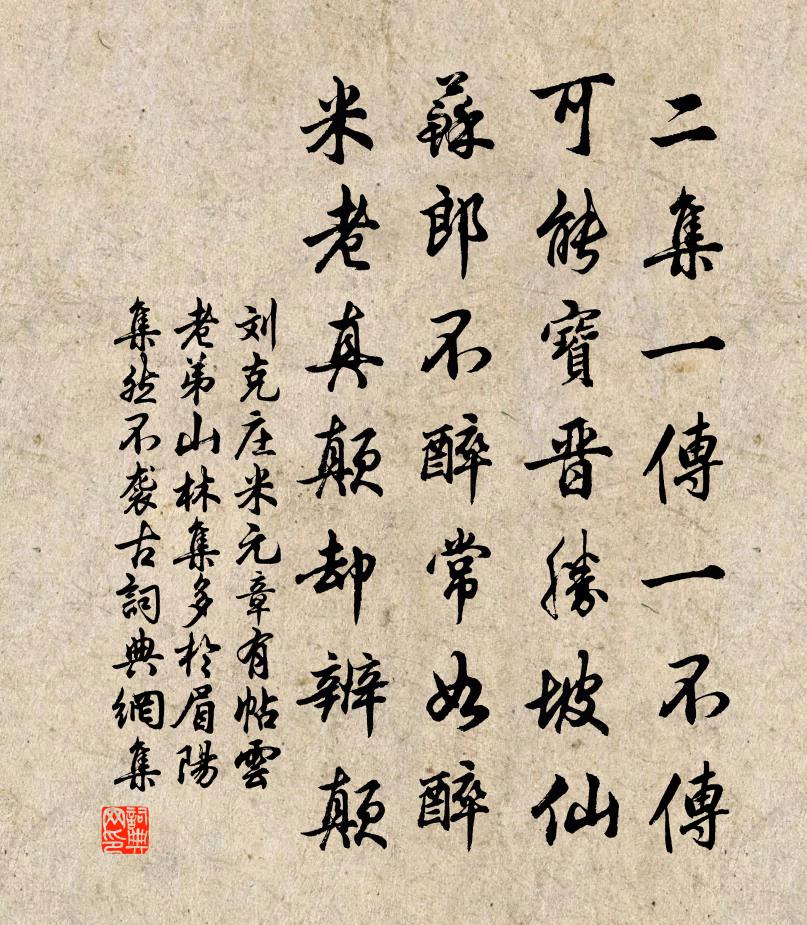 二集一傳一不傳
可能寶晋勝坡仙
蘇郎不醉常如醉
米老真顛却辨顛
刘克庄米元章有帖雲
老弟山林集多於眉陽
集然不袭古詞典網集
詞典网印